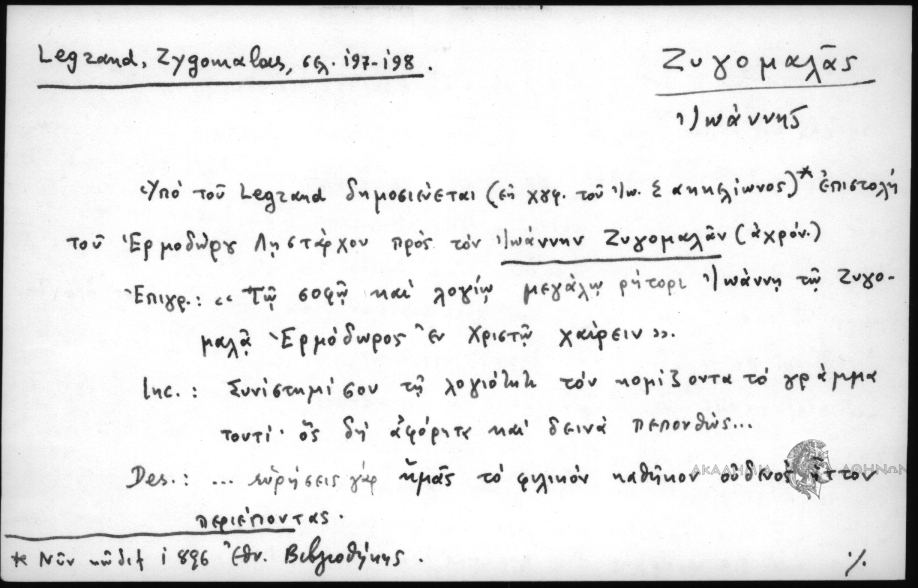 Legrand, Zygomalas, σελ. 197-198.
Ζυγομαλᾶς
Ἰωάννης
Ὑπό τοῦ Legrand δημοσιεύεται (ἐκ χγφ. τοῦ Ἰω. Σακκελίωνος)* ἐπιστολή
τοῦ Ἑρμοδώρου Ληστάρχου πρός τόν Ἰωάννην Ζυγομαλᾶν (ἀχρόν.)
Ἐπιγρ.: « Τῷ σοφῷ καί λογίῳ μεγάλῳ ρήτορι Ἰωάννῃ τῷ Ζυγο-
μαλᾷ Ἑρμόδωρος ἐν Χριστῷ χαίρειν ».
Inc.: Συνίστημί σου τῇ λογιότητι τόν κομίζοντα τό γράμμα
τουτί· ὅς δή ἀφόρητα καί δεινά πεπονθώς...
Des.: ... εὑρήσεις γάρ ἡμᾶς τό φιλικόν καθῆκον οὐδενός ἧττον
περιέποντας.
ΑΚΑΔΗΜΙΑ ΑΘΗΝΩΝ
* Νῦν κῶδιξ 1896 Ἐθν. Βιβλιοθήκης.
·/.